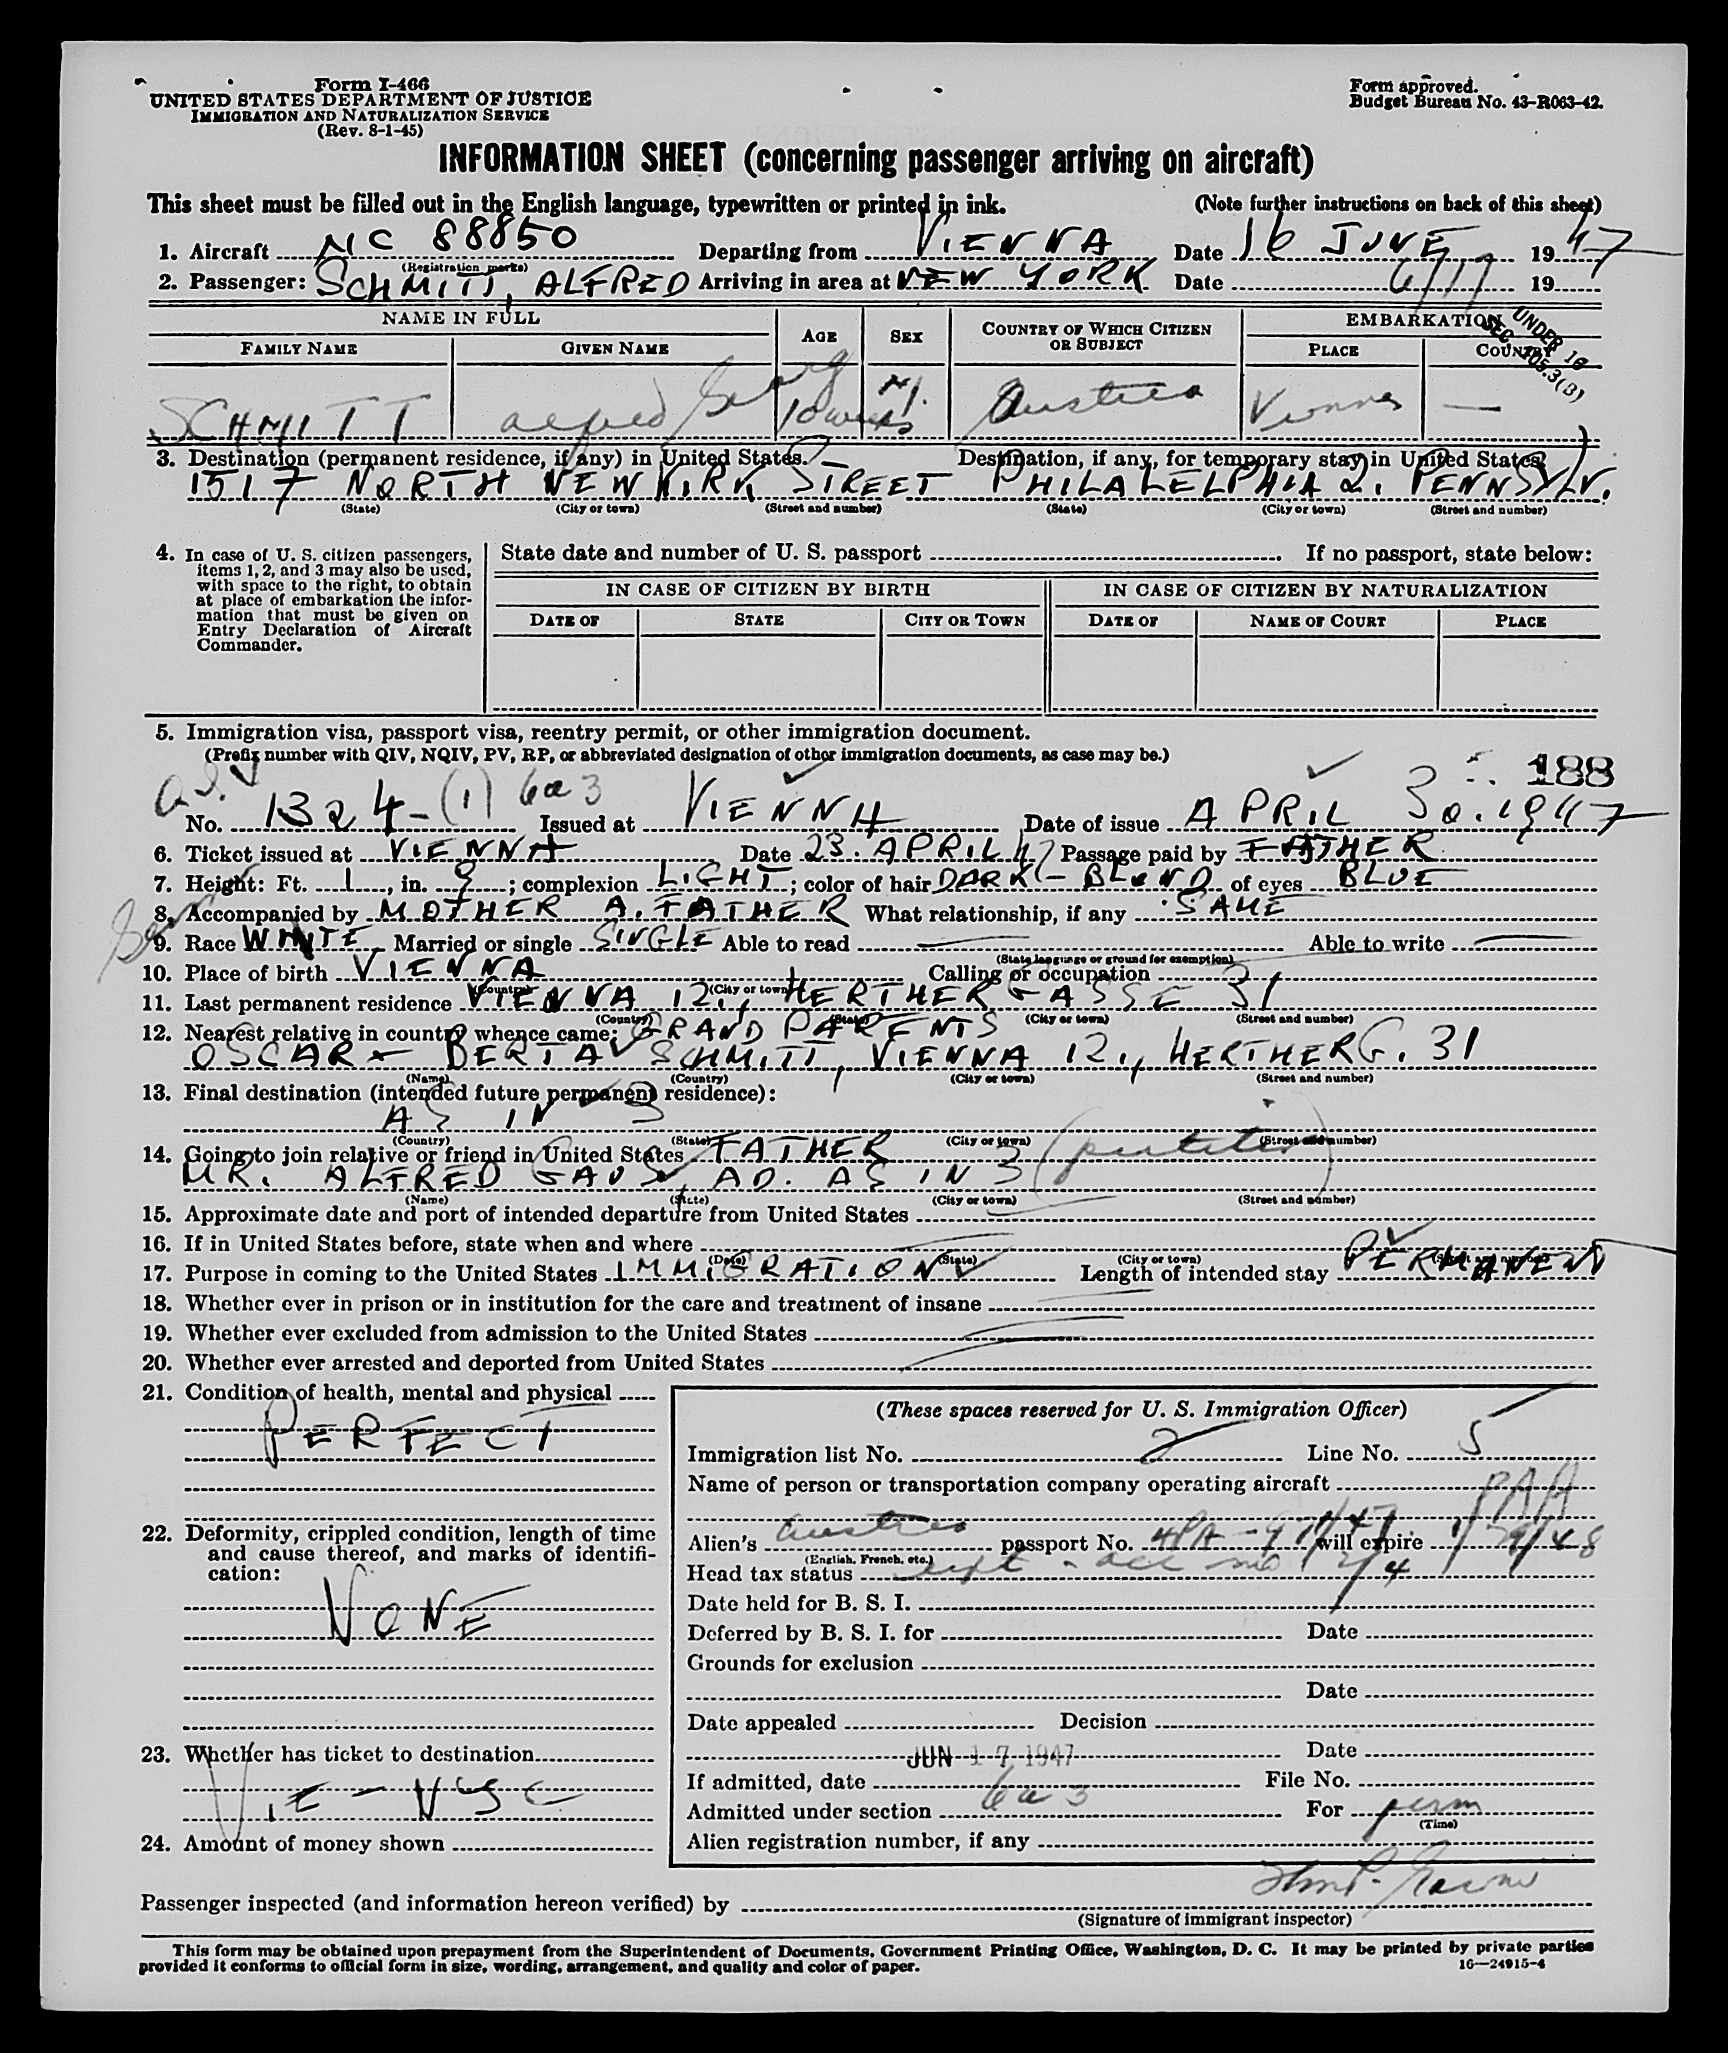 Form I-466
UNITED STATES DEPARTMENT OF JUSTICE
IMMIGRATION AND NATURALIZATION SERVICE
(Rev. 8-1-45)
Form approved.
Budget Bureau No. 43-R063-42.
INFORMATION SHEET (concerning passenger arriving on aircraft)
This sheet must be filled out in the English language, typewritten or printed in ink. (Note further instructions on back of this sheet)
1. Aircraft NC 88850 Departing from VIENNA Date 16 JUNE 1947
(Registration marks)
2. Passenger: SCHMITT, ALFRED Arriving in area at NEW YORK Date 6/17 19
NAME IN FULL AGE SEX COUNTRY OF WHICH CITIZEN OR SUBJECT EMBARKATION
FAMILY NAME GIVEN NAME PLACE COUNTRY
UNDER 16
SEC. 105.3(B)
SCHMITT Alfred Georg 10 weeks M. Austria Vienna —
3. Destination (permanent residence, if any) in United States. Destination, if any, for temporary stay in United States.
1517 NORTH NEWKIRK STREET PHILALELPHIA 2. PENNSYLV.
(State) (City or town) (Street and number) (State) (City or town) (Street and number)
4. In case of U. S. citizen passengers, items 1, 2, and 3 may also be used, with space to the right, to obtain at place of embarkation the information that must be given on Entry Declaration of Aircraft Commander.
State date and number of U. S. passport If no passport, state below:
IN CASE OF CITIZEN BY BIRTH IN CASE OF CITIZEN BY NATURALIZATION
DATE OF STATE CITY OR TOWN DATE OF NAME OF COURT PLACE
5. Immigration visa, passport visa, reentry permit, or other immigration document.
(Prefix number with QIV, NQIV, PV, RP, or abbreviated designation of other immigration documents, as case may be.)
188
No. 1324-(1) 6a3 Issued at VIENNA Date of issue APRIL 30. 1947
6. Ticket issued at VIENNA Date 23. APRIL 47 Passage paid by FATHER
7. Height: Ft. 1, in. 9; complexion LIGHT; color of hair DARK-BLOND of eyes BLUE
8. Accompanied by MOTHER A. FATHER What relationship, if any SAME
9. Race WHITE Married or single SINGLE Able to read — Able to write —
(State language or ground for exemption)
10. Place of birth VIENNA Calling or occupation
(Country) (City or town)
11. Last permanent residence VIENNA 12., HERTHERGASSE 31
(Country) (State) (City or town) (Street and number)
12. Nearest relative in country whence came: GRAND PARENTS
OSCAR - BERTA SCHMITT, VIENNA 12., HERTHERG. 31
(Name) (Country) (City or town) (Street and number)
13. Final destination (intended future permanent residence):
AS IN 3
(Country) (State) (City or town) (Street and number)
14. Going to join relative or friend in United States FATHER
MR. ALFRED GAUS, AD. AS IN 3
(Name) (State) (City or town) (Street and number)
15. Approximate date and port of intended departure from United States
16. If in United States before, state when and where
(Date) (State) (City or town) (Street and number)
17. Purpose in coming to the United States IMMIGRATION Length of intended stay PERMANENT
18. Whether ever in prison or in institution for the care and treatment of insane
19. Whether ever excluded from admission to the United States
20. Whether ever arrested and deported from United States
21. Condition of health, mental and physical
PERFECT
22. Deformity, crippled condition, length of time and cause thereof, and marks of identification:
NONE
23. Whether has ticket to destination
VIE - NYC
24. Amount of money shown
(These spaces reserved for U. S. Immigration Officer)
Immigration list No. 2 Line No. 5
Name of person or transportation company operating aircraft PAA
Alien's Austria passport No. will expire
(English, French, etc.)
Head tax status
Date held for B. S. I.
Deferred by B. S. I. for Date
Grounds for exclusion
Date
Date appealed Decision
Date
JUN 17 1947
If admitted, date File No.
Admitted under section 6a3 For perm
(Time)
Alien registration number, if any
Passenger inspected (and information hereon verified) by
(Signature of immigrant inspector)
This form may be obtained upon prepayment from the Superintendent of Documents, Government Printing Office, Washington, D. C. It may be printed by private parties
provided it conforms to official form in size, wording, arrangement, and quality and color of paper.
16—24915-4